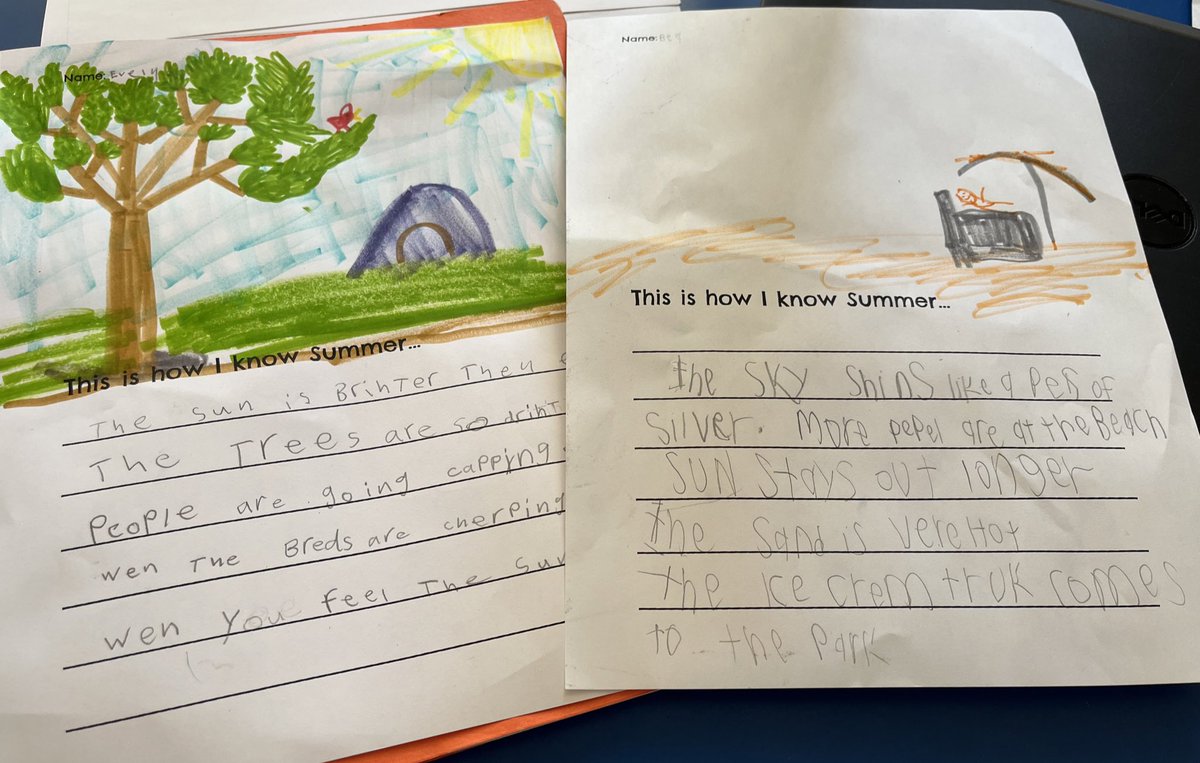 Name: Evely
This is how I know Summer...
The sun is BrihTer Then
The Trees are so drint
People are going capping
wen The Breds are cherping
wen you feel The sun
Name: Be
This is how I know Summer...
the SKY Shins like a Pes of
Silver. More pepel are at the Beach
SUN Stays out longer
the Sand is vere Hot
the ice crem truk comes
to the Park
DELL